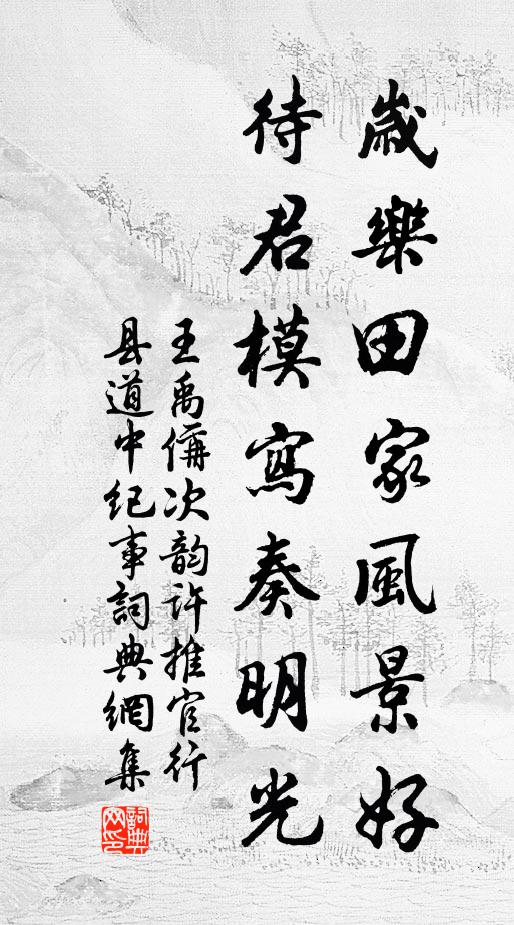 歲樂田家風景好
待君模寫奏明光
王禹偁次韵许推官行
县道中纪事詞典網集
詞典
网印